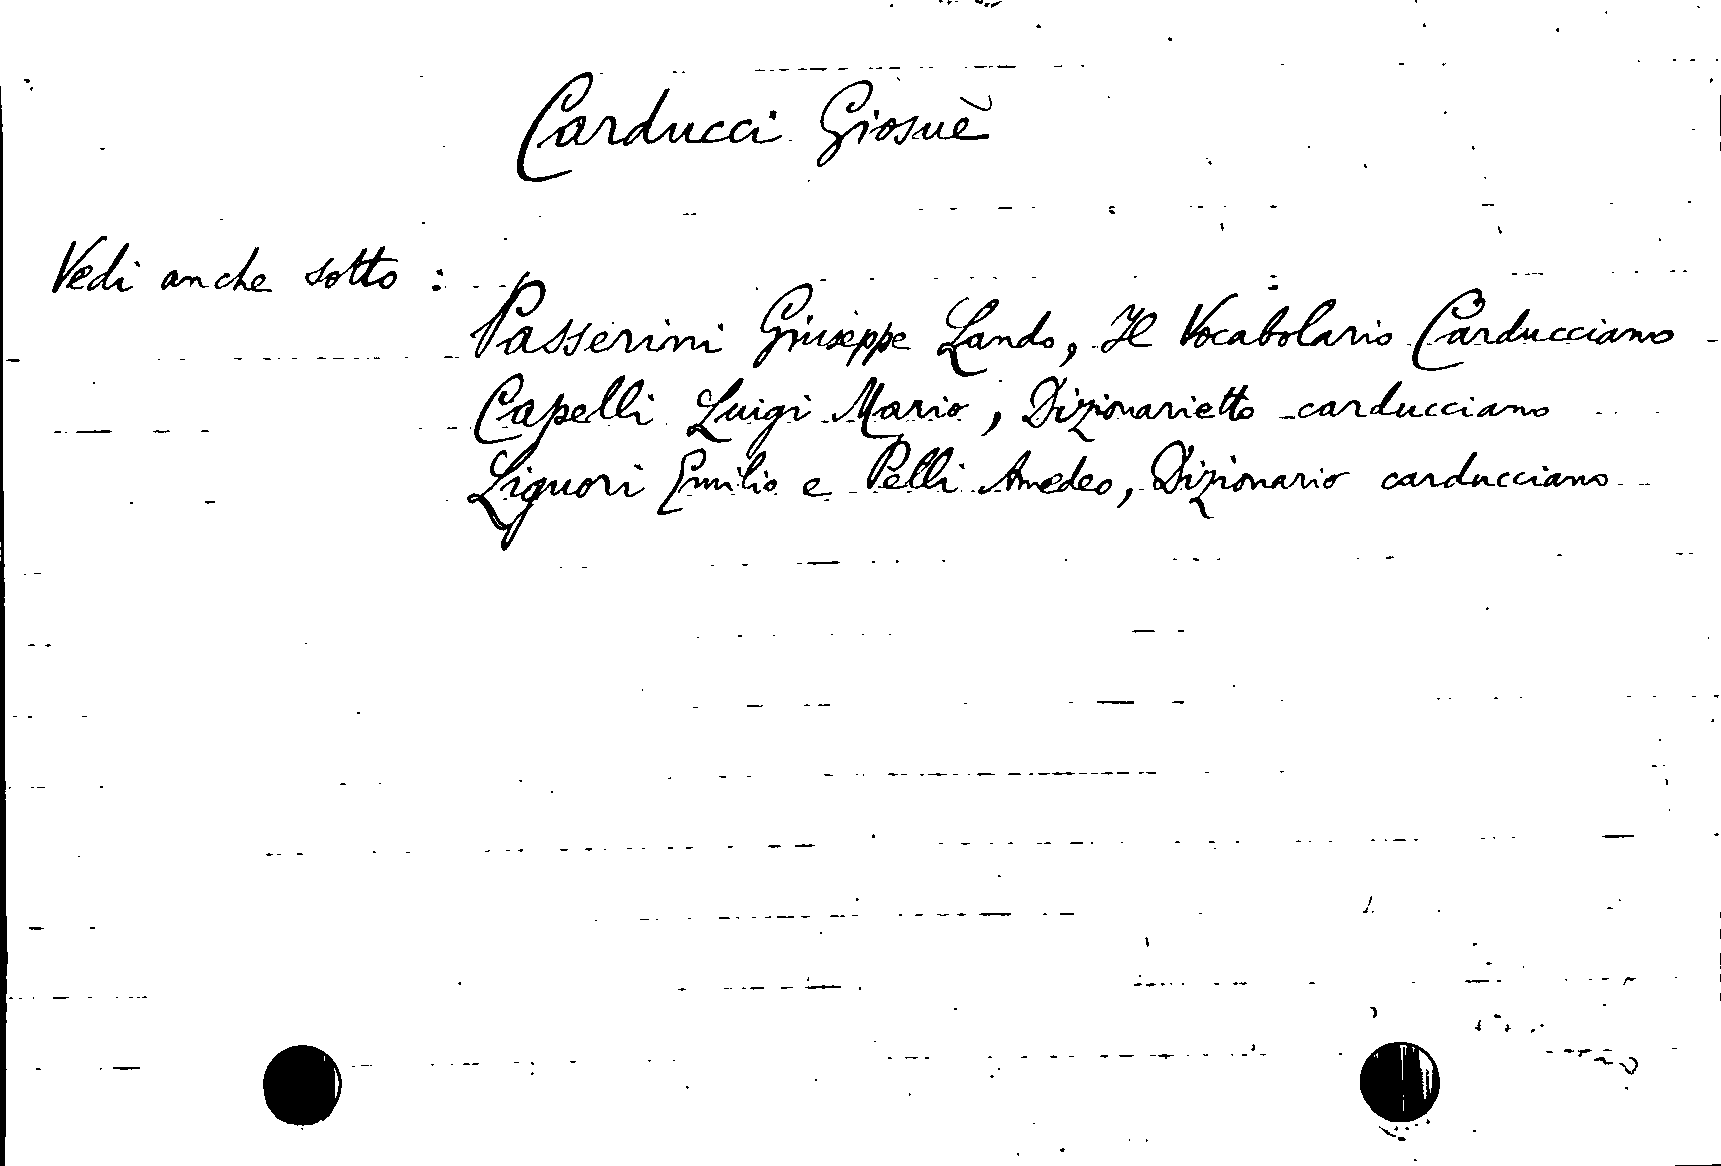 Carducci Giosuè
Vedi anche sotto :
Passerini Giuseppe Lando, Il Vocabolario Carducciano
Capelli Luigi Mario, Dizionarietto carducciano
Liguori Emilio e Pelli Amedeo, Dizionario carducciano